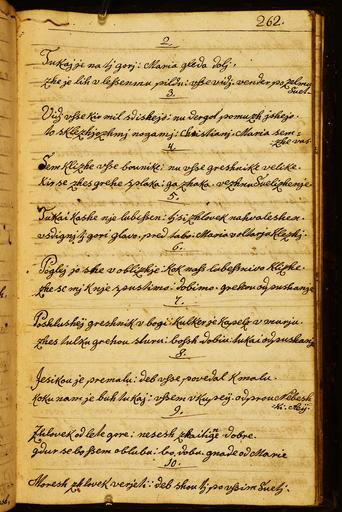 262.
2.
Tukaj je na tj gorj: Maria gleda dolj,
zhe je lih v lessenmu pildu: vsse vidj vender po zelmu
Suet.
3.
Vidj vsse kir mil sdishejo: nu dergot pomuzh jshejo.
to sklezhjozhmj nogamj: Christianj. Maria sem
zhe vas.
4.
Sem klizhe vsse bounike: nu vsse greshnike velike.
kir se zhes grehe splaka: ga zhaka. vezhnu Suelizhenje
5.
Tukai kashe nje lubesen: tj si zhlovek nahvaleshen.
vsdignj tj gori glavo. pred tabo: Maria v oltarjo klezhj.
6.
Poglej jo she v oblizhje: kok nass lubesnivo klizhe.
zhe se mj k nje spustimo: dobimo. grehou odpushanje
7.
Poslushej greshnik v bogi: kulker je kapelz v murju.
zhes tulku grehou sturu: bosh dobiu tukai odpushanje
8.
Jesikou je premalu: deb vsse povedal k malu.
koku nam je buh tukaj: vsem vkupej: odprou Nebesh
ki. Rej.
9.
Zhlovek od lete gore: nesesh zhailige dobre.
gdur se bo ssem obluba: bo. dobu. gnade od Marie
10.
Moresh zhlovek verjeti: deb shou tj po vssim Suetj.